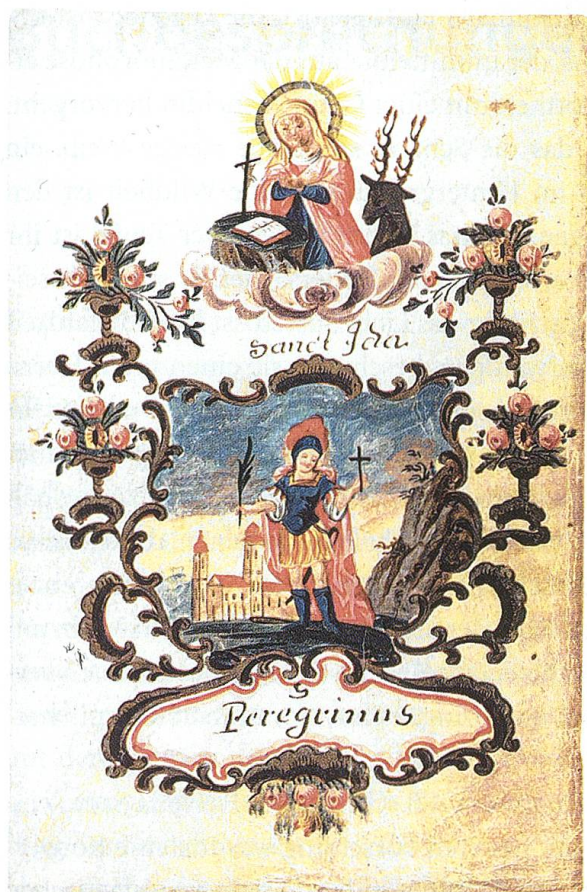 Sanct Ida
S
Peregrinus